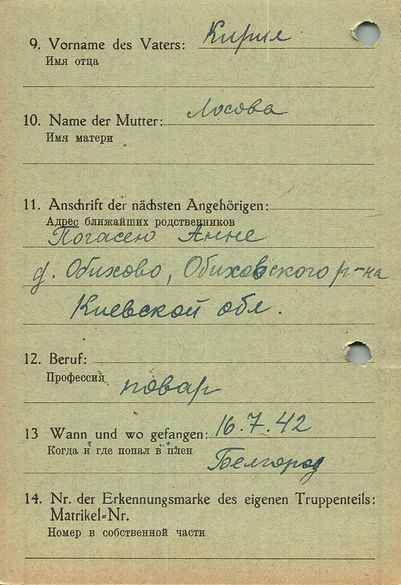 9. Vorname des Vaters: Кирил
Имя отца
10. Name der Mutter: Лосова
Имя матери
11. Anschrift der nächsten Angehörigen:
Адрес ближайших родственников
Погасею Анне
д. Обихово, Обиховского р-на
Киевской обл.
12. Beruf:
Профессия повар
13 Wann und wo gefangen: 16.7.42
Когда и где попал в плен
Белгород
14. Nr. der Erkennungsmarke des eigenen Truppenteils:
Matrikel-Nr.
Номер в собственной части